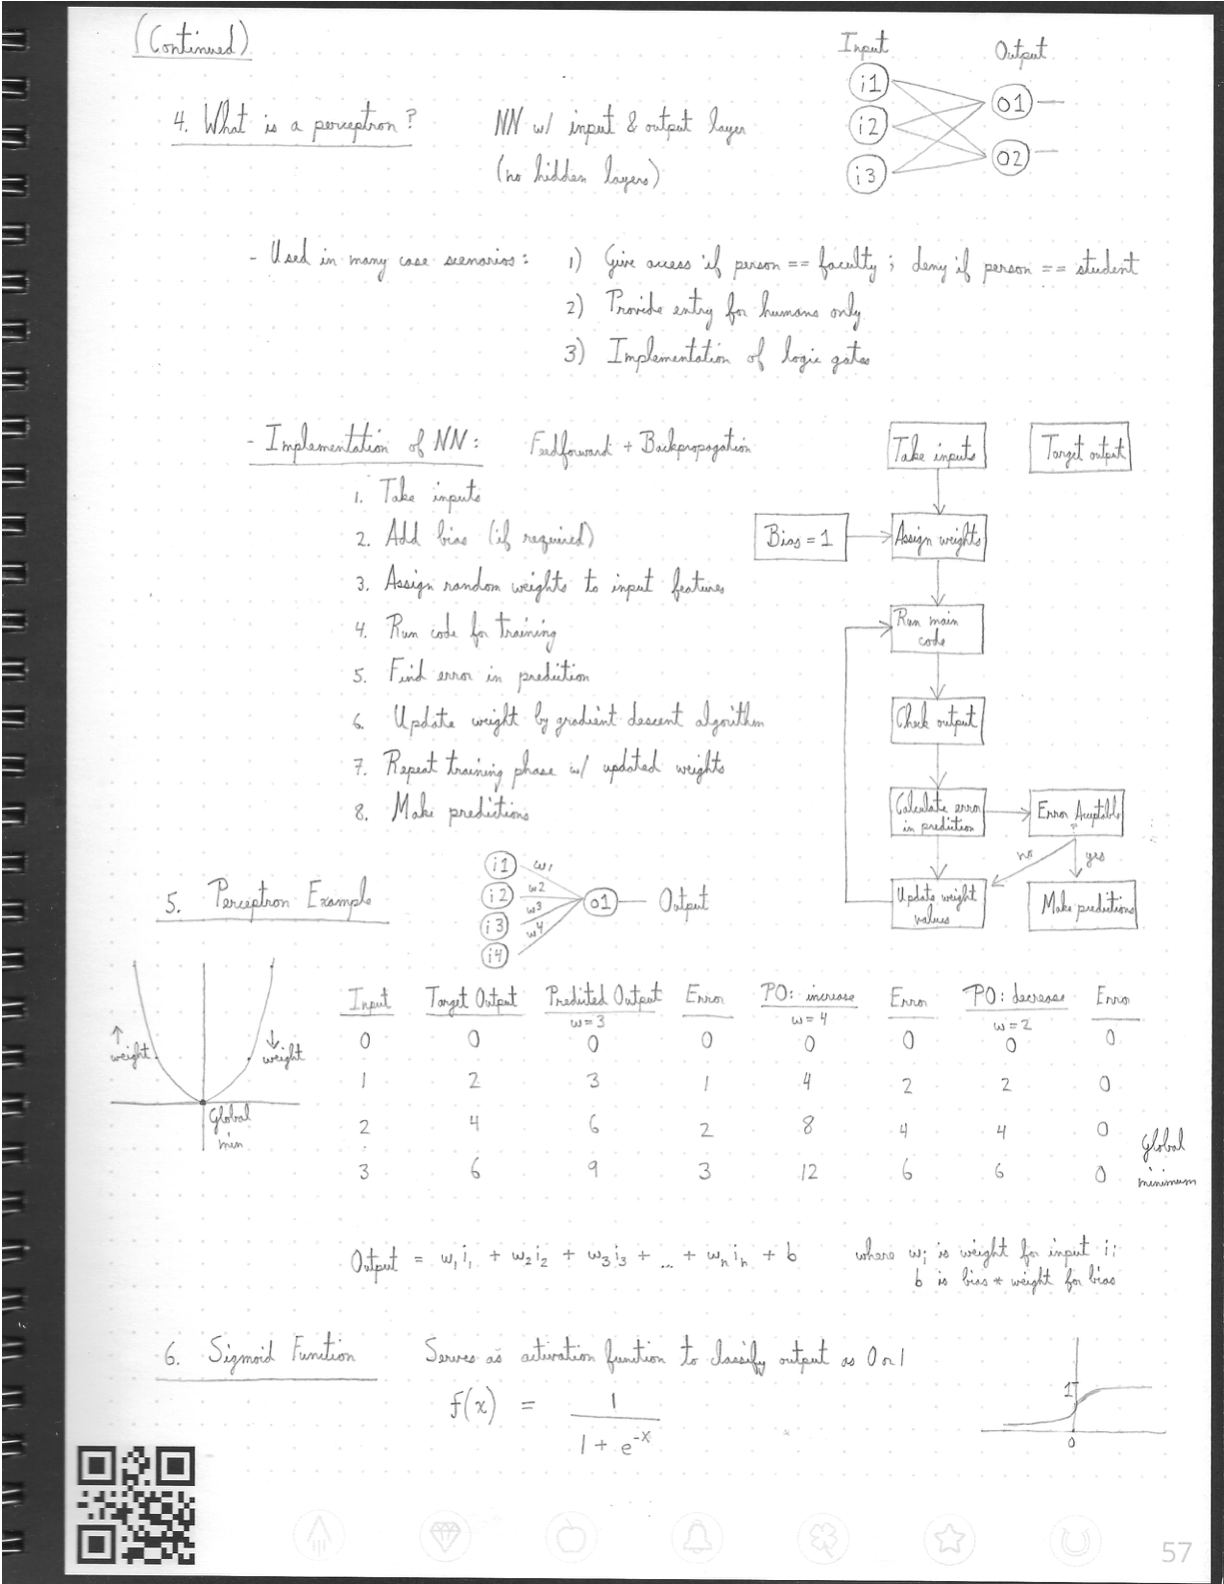 (Continued)
Input
Output
i1
i2
i3
o1
o2
4. What is a perceptron?
NN w/ input & output layer
(no hidden layers)
- Used in many case scenarios:
1) Give access if person == faculty; deny if person == student
2) Provide entry for humans only
3) Implementation of logic gates
- Implementation of NN: Feedforward + Backpropagation
1. Take inputs
2. Add bias (if required)
3. Assign random weights to input features
4. Run code for training
5. Find error in prediction
6. Update weight by gradient descent algorithm
7. Repeat training phase w/ updated weights
8. Make predictions
Take inputs
Target output
Bias = 1
Assign weights
Run main
code
Check output
Calculate error
in prediction
Error Acceptable
?
no
yes
Update weight
values
Make predictions
5. Perceptron Example
i1
i2
i3
i4
w1
w2
w3
w4
o1
Output
↑
weight
↓
weight
Global
min
Input Target Output Predicted Output Error PO: increase Error PO: decrease Error
w=3 w=4 w=2
0 0 0 0 0 0 0 0
1 2 3 1 4 2 2 0
2 4 6 2 8 4 4 0
3 6 9 3 12 6 6 0
Global
minimum
Output = w₁i₁ + w₂i₂ + w₃i₃ + ... + wₙiₙ + b where wᵢ is weight for input iᵢ
b is bias * weight for bias
6. Sigmoid Function Serves as activation function to classify output as 0 or 1
f(x) = 1
1 + e⁻ˣ
1
0
57